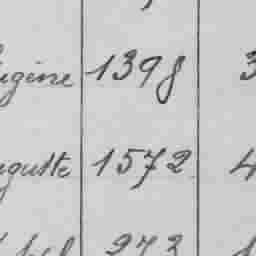 ugène 1398 3
ugutte 1572 4
273